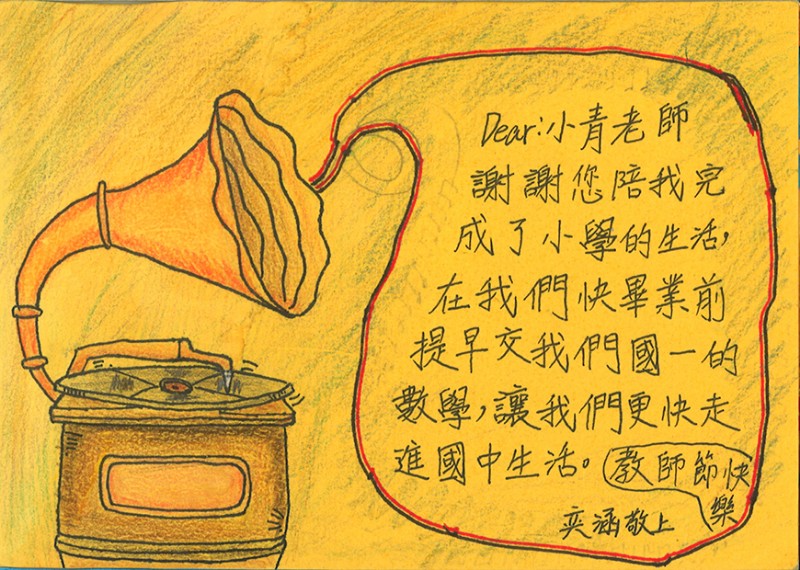 Dear:小青老師
謝謝您陪我完
成了小學的生活,
在我們快畢業前
提早交我們國一的
數學,讓我們更快走
進國中生活。
教師節快
樂
奕涵敬上